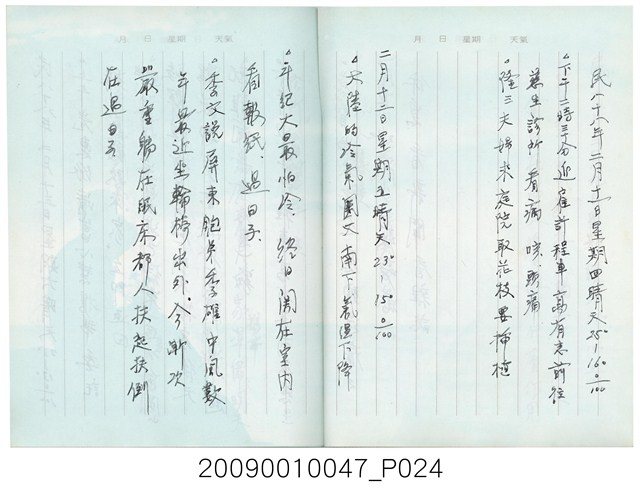 月 日 星期 天氣
民八十八年二月十一日星期四晴天25°-16° 0/100
△下午二時三分近雇計程車高有志前往
慈生診所看病咳頭痛
△隆三夫婦來庭院取花枝要插植
二月十二日星期五晴天23°-15° 0/100
△大陸的冷氣團又南下氣溫下降
月 日 星期 天氣
△年紀大最怕冷、終日關在室內
看報紙、過日子、
△季文說屏東胞弟季雄中風數
年最近坐輪椅出外、今漸次
嚴重躺在眠床都人扶起扶倒
在過日子
20090010047_P024